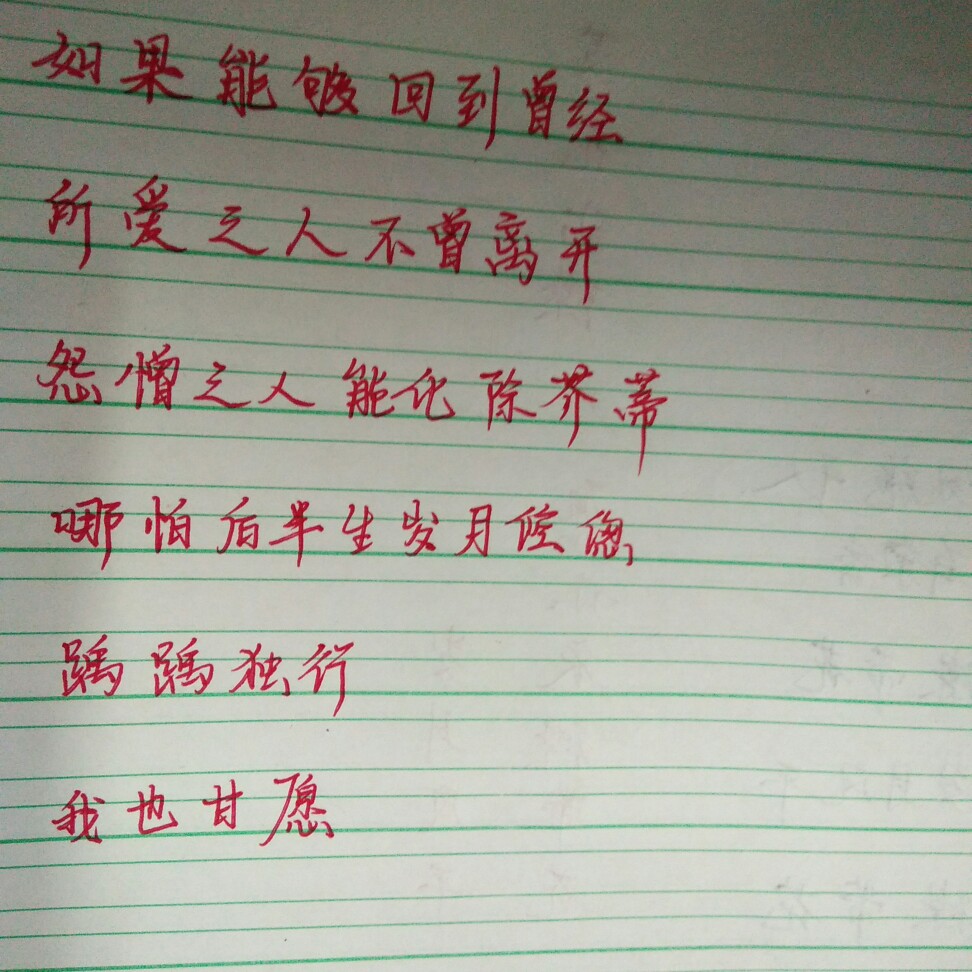 如果能够回到曾经
所爱之人不曾离开
怨憎之人能化除芥蒂
哪怕后半生岁月倥偬
踽踽独行
我也甘愿